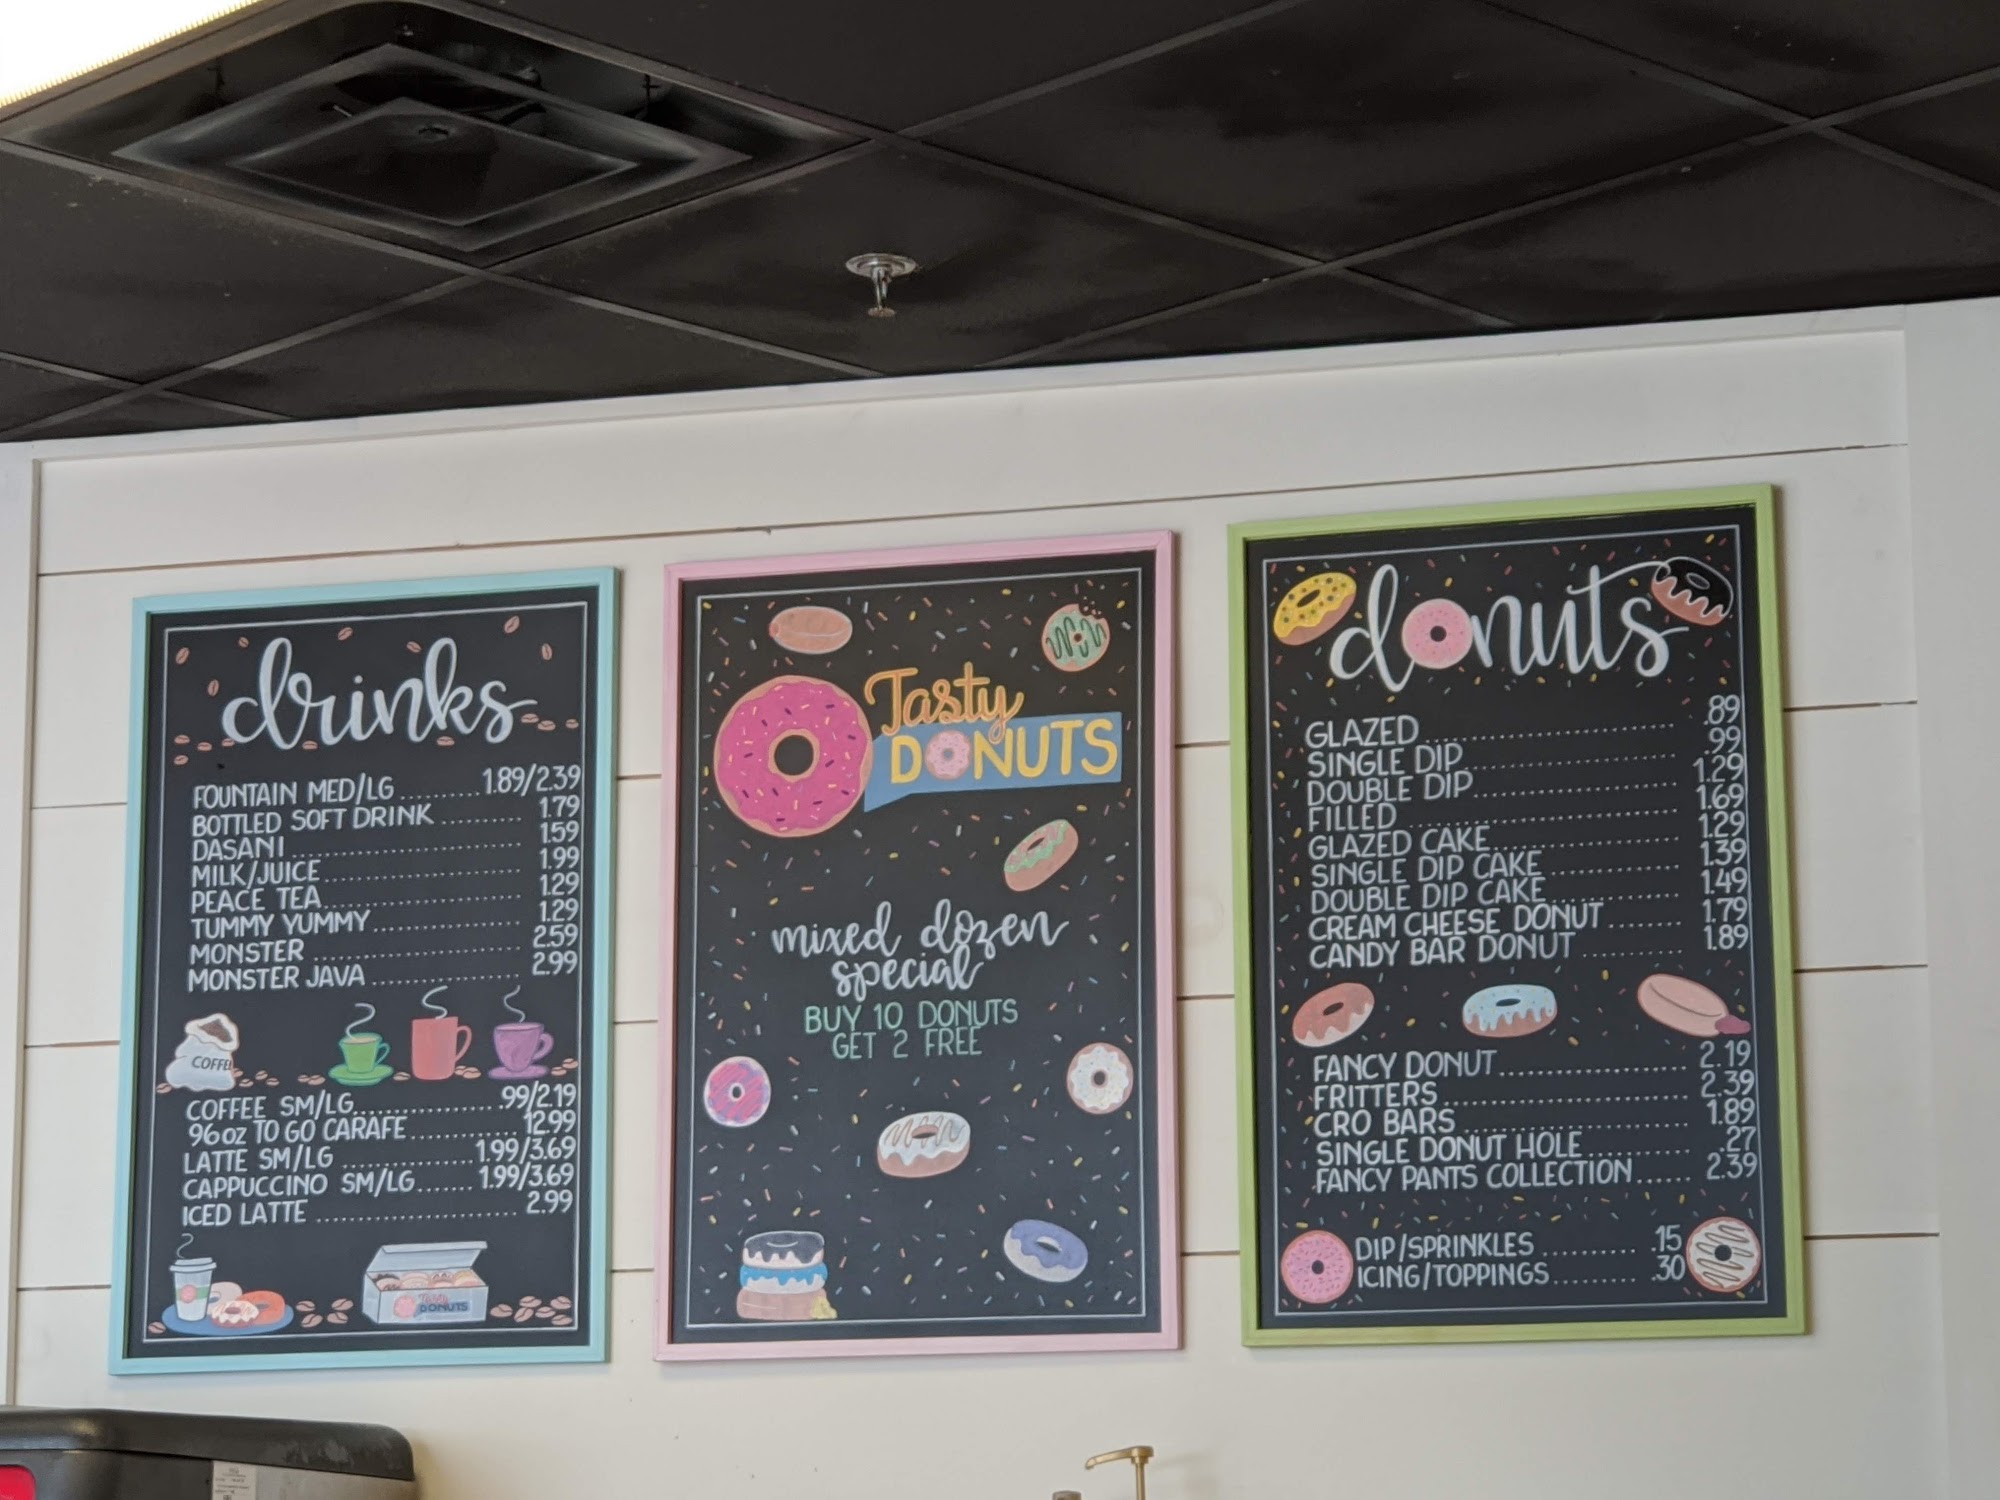 drinks
FOUNTAIN MED/LG .......... 1.89/2.39
BOTTLED SOFT DRINK .......... 1.79
DASANI .......... 1.59
MILK/JUICE .......... 1.99
PEACE TEA .......... 1.29
TUMMY YUMMY .......... 1.29
MONSTER .......... 2.59
MONSTER JAVA .......... 2.99
COFFEE
COFFEE SM/LG .......... .99/2.19
96oz TO GO CARAFE .......... 12.99
LATTE SM/LG .......... 1.99/3.69
CAPPUCCINO SM/LG ....... 1.99/3.69
ICED LATTE .......... 2.99
Tasty
DONUTS
Tasty
DONUTS
mixed dozen
special
BUY 10 DONUTS
GET 2 FREE
donuts
GLAZED .......... .89
SINGLE DIP .......... .99
DOUBLE DIP .......... 1.29
FILLED .......... 1.69
GLAZED CAKE .......... 1.29
SINGLE DIP CAKE .......... 1.39
DOUBLE DIP CAKE .......... 1.49
CREAM CHEESE DONUT .......... 1.79
CANDY BAR DONUT .......... 1.89
FANCY DONUT .......... 2.19
FRITTERS .......... 2.39
CRO BARS .......... 1.89
SINGLE DONUT HOLE .......... .27
FANCY PANTS COLLECTION ...... 2.39
DIP/SPRINKLES .......... .15
ICING/TOPPINGS ......... .30